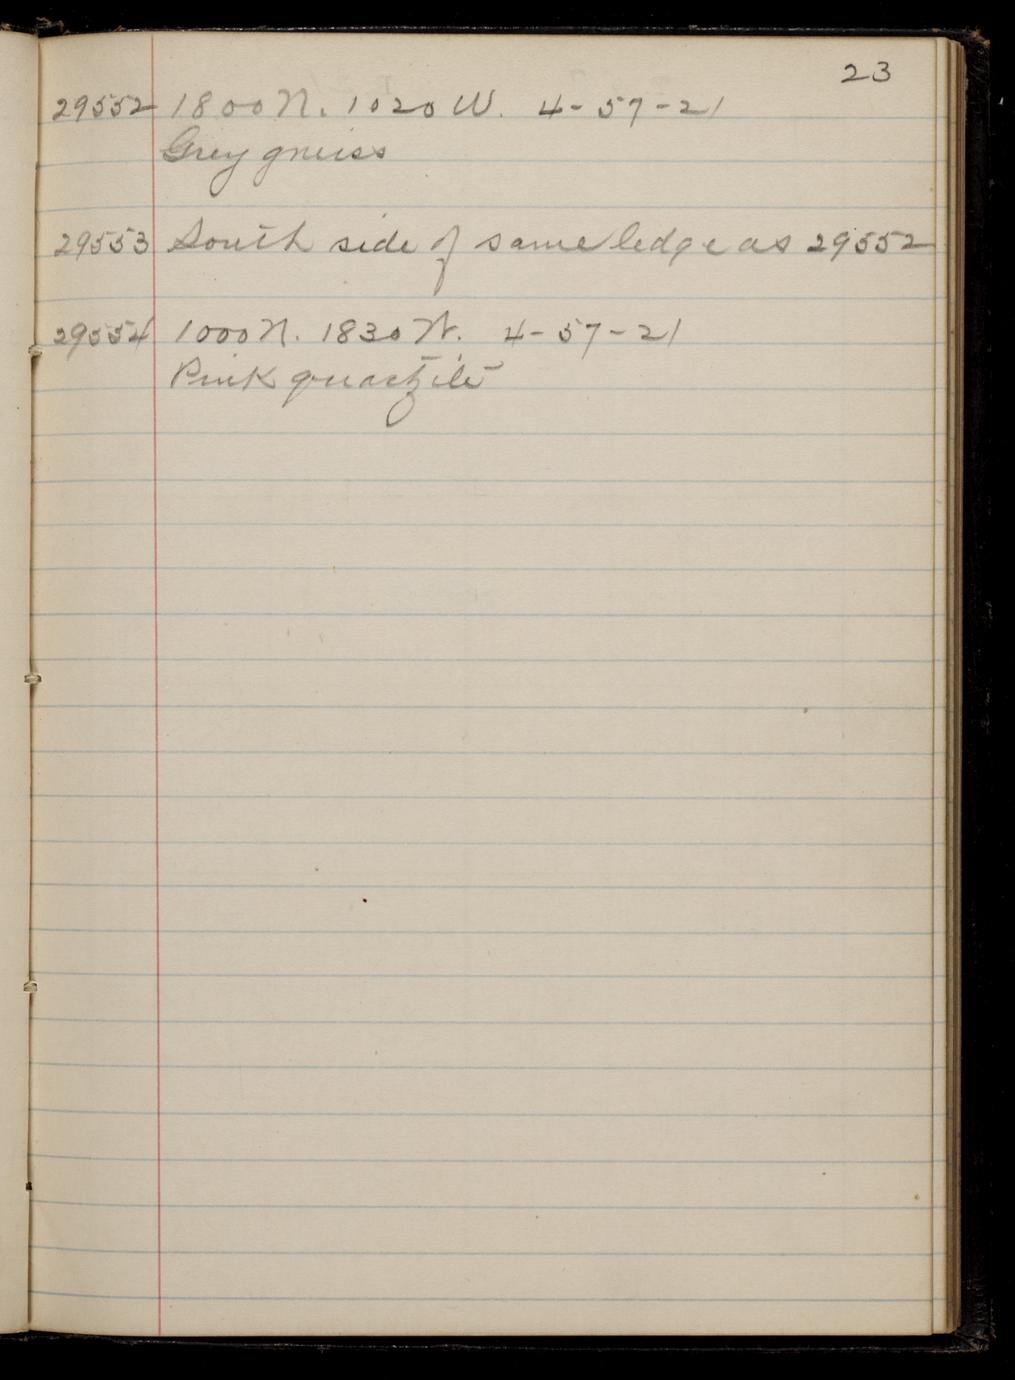 23
29552 1800 N. 1020 W. 4-57-21
Grey gneiss
29553 South side of same ledge as 29552
29554 1000 N. 1830 W. 4-57-21
Pink quartzite